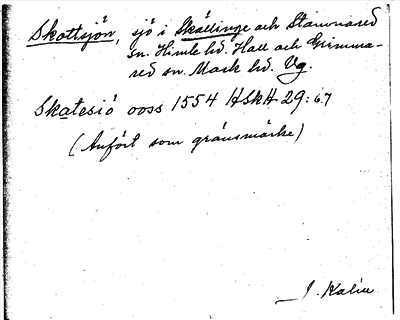 Skottsjön, sjö i Skällinge och Stamnared
sn. Himle hd. Hall och Grimma-
red sn. Mark hd. Vg.
Skatesiö ooss 1554 HSkH 29:67
(Anfört som gränsmärke)
J. Kalin